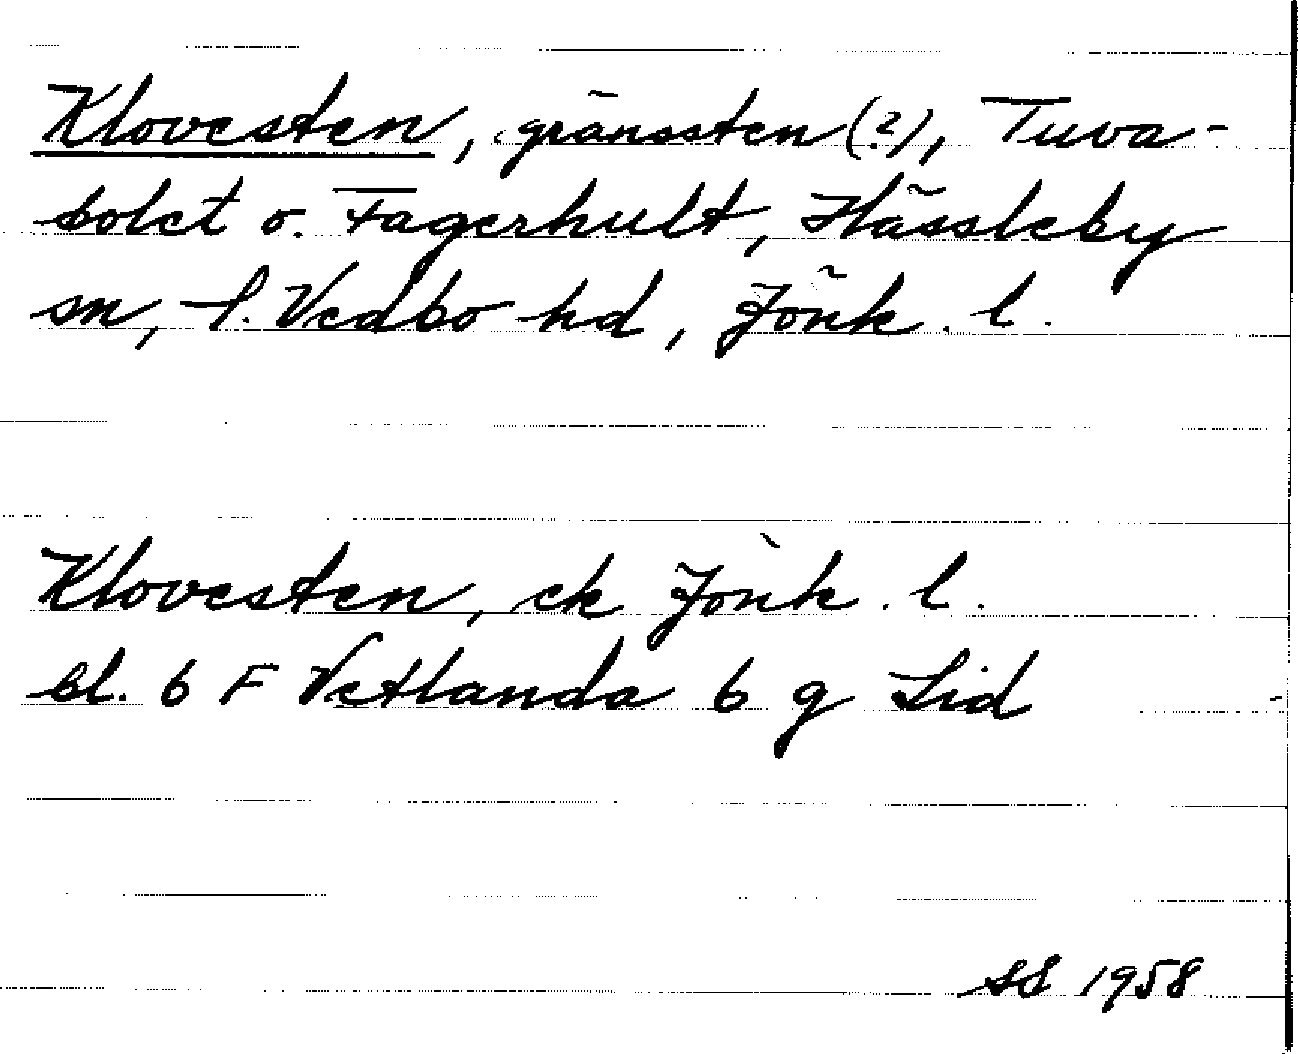 Klovesten, gränssten (?), Tuva-
bolet o. Fagerhult, Hässleby
sn, S. Vedbo hd, Jönk. l.
Klovesten, ek Jönk. l.
bl. 6 F Vetlanda 6 g Lid
SS 1958